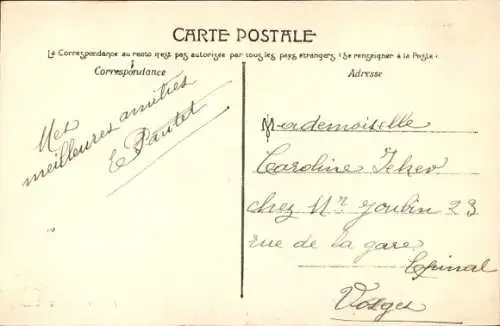 CARTE POSTALE
La Correspondance au recto n'est pas autorisée par tous les pays étrangers (Se renseigner à la Poste)
Correspondance
Adresse
Mes
meilleures amitiés
E Pautet
Mademoiselle
Caroline
chez Mr Joubin 23
rue de la gare
Epinal
Vosges